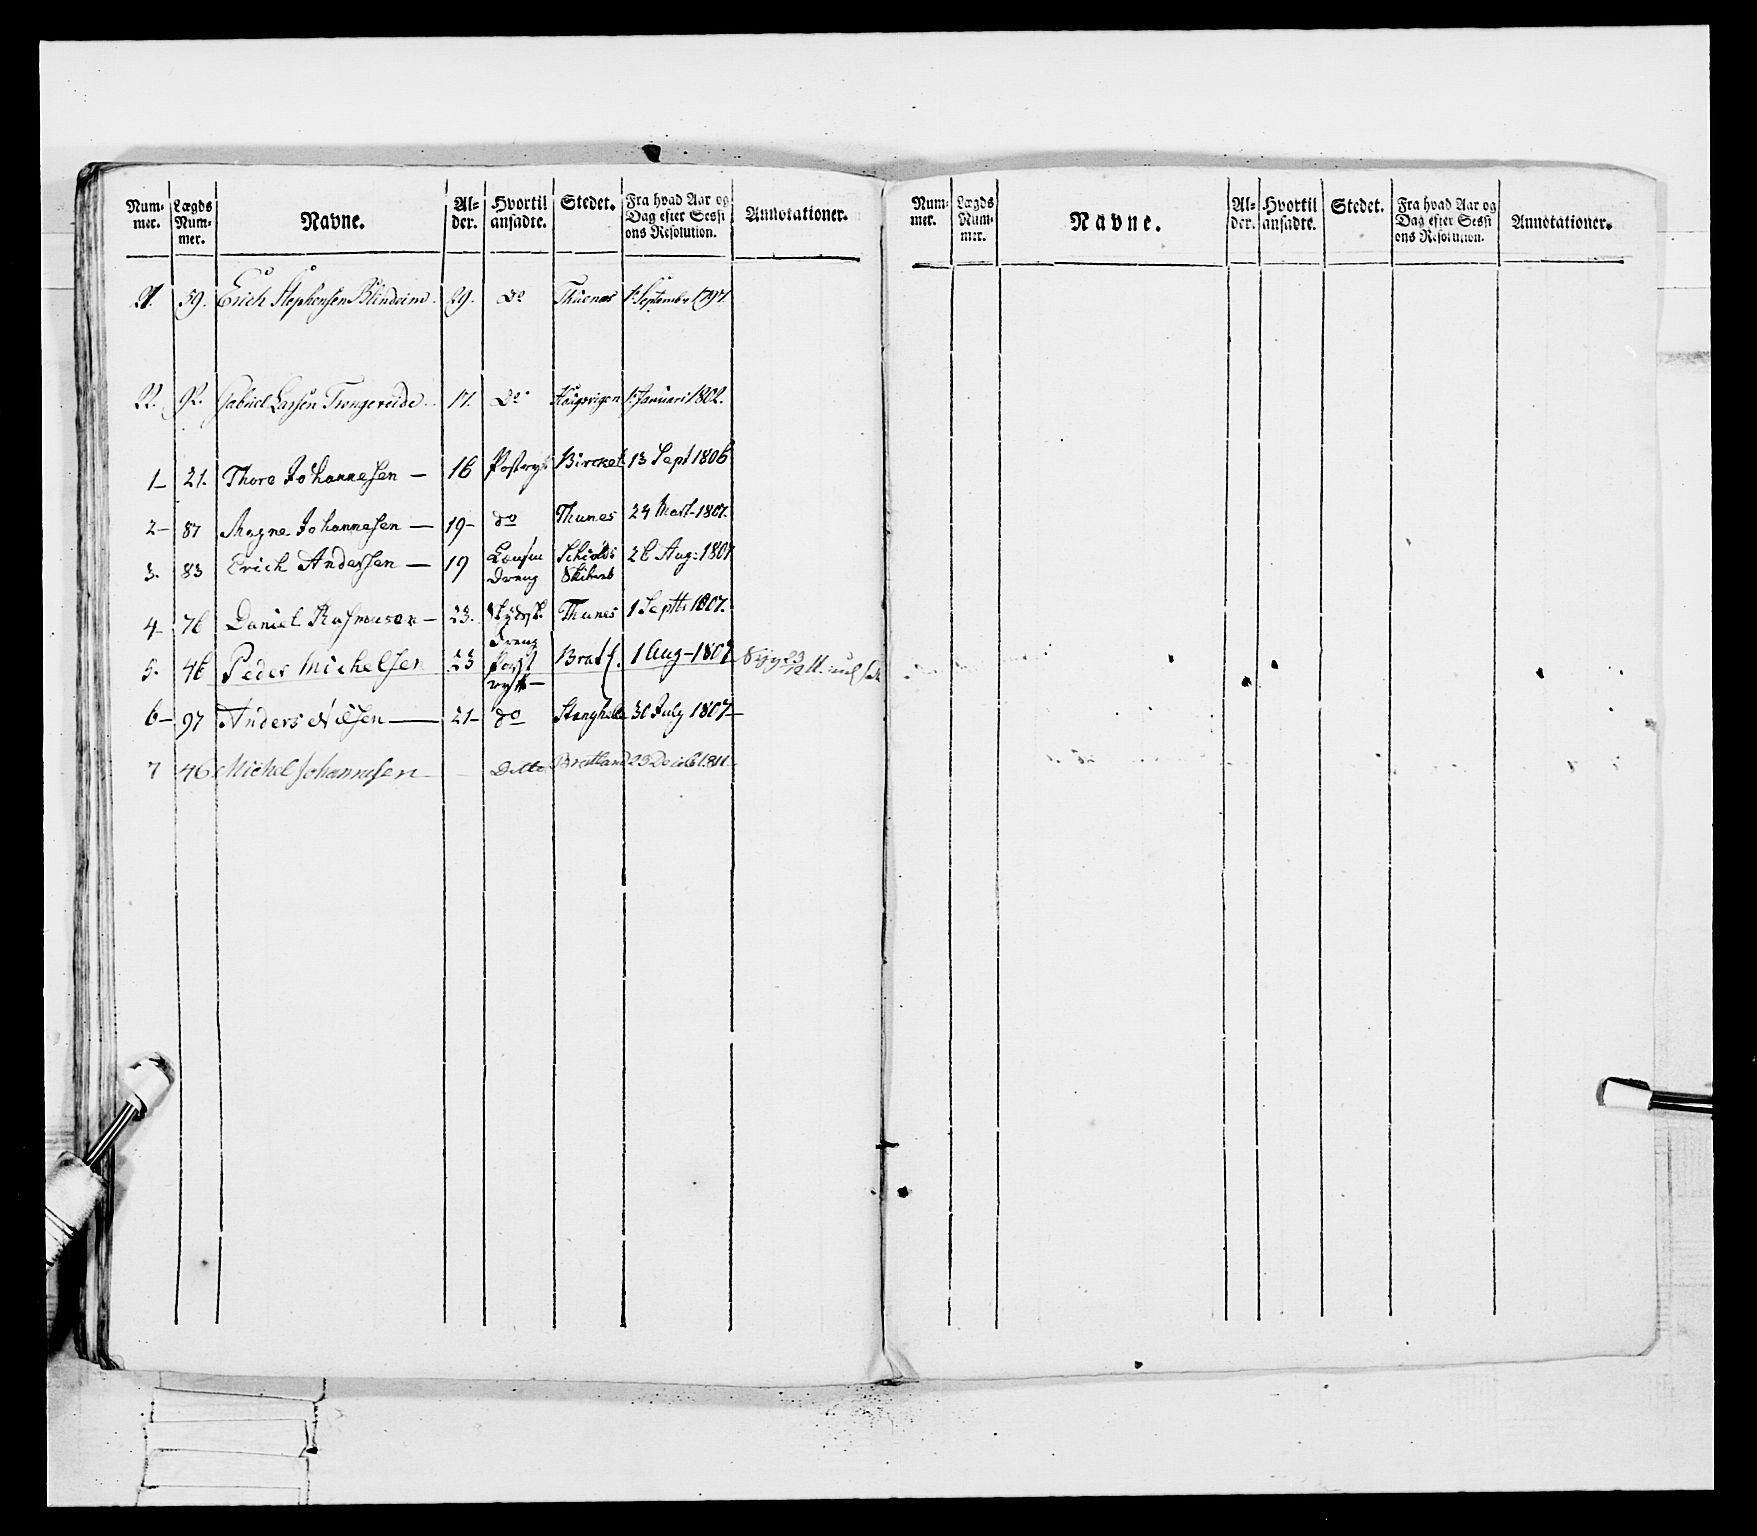 Num- mer. Lægds Num- mer. Navne. Al- der. Hvortil ansadte. Stedet. Fra hvad Aar og Dag efter Sessi ons Resolution. Annotationer.
21. 59. Erich Stephensen Blindeim. 29. do Thuenes 1 Septembr 1797.
22. 92. Gabriel Larsen Trengereide. 17. do 1 Januari 1802.
1- 21. Thore Johannesen - 16 Birchet 13 Sept 1806
2- 87 Magne Johannesen - 19- do Thunes 24 Mart 1807.
3. 83 Erich Andersen - 19 Lænsm Dreng Schiolds 26 Aug: 1807
4- 76 Daniel Rasmusen - 23. Thunes 1 Septb 1807.
Dreng
5. 46 Peder Michelsen 23 Post 1 Aug - 1807
6- 97 Anders Nilsen - 21- do Stanghelle 30 July 1807-
7 46 Michel Johannesen - Ditto Brattland
Num- mer. Lægds Num- mer. Navne. Al- der. Hvortil ansadte. Stedet. Fra hvad Aar og Dag efter Sessi ons Resolution. Annotationer.